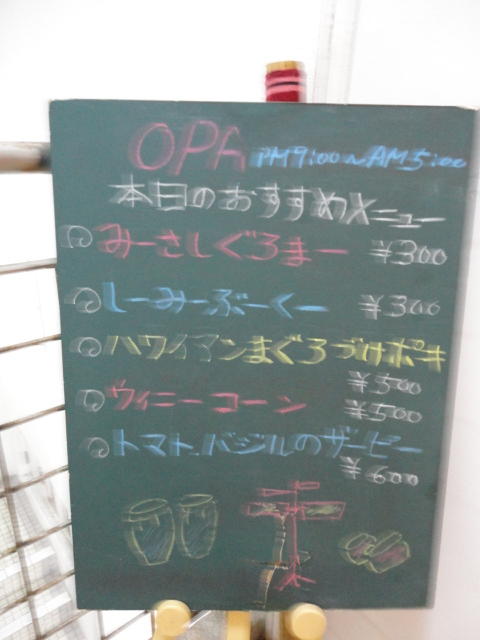 OPA PM9:00~AM5:00
本日のおすすめメニュー
みーさしぐろまー ¥300
しーみーぶーくー ¥300
ハワイアンまぐろづけポキ
¥500
ウィニーコーン ¥500
トマト、バジルのザーピー
¥600